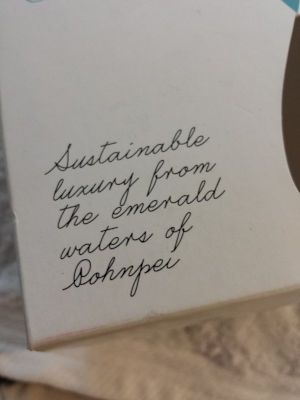 Sustainable
luxury from
the emerald
waters of
Pohnpei